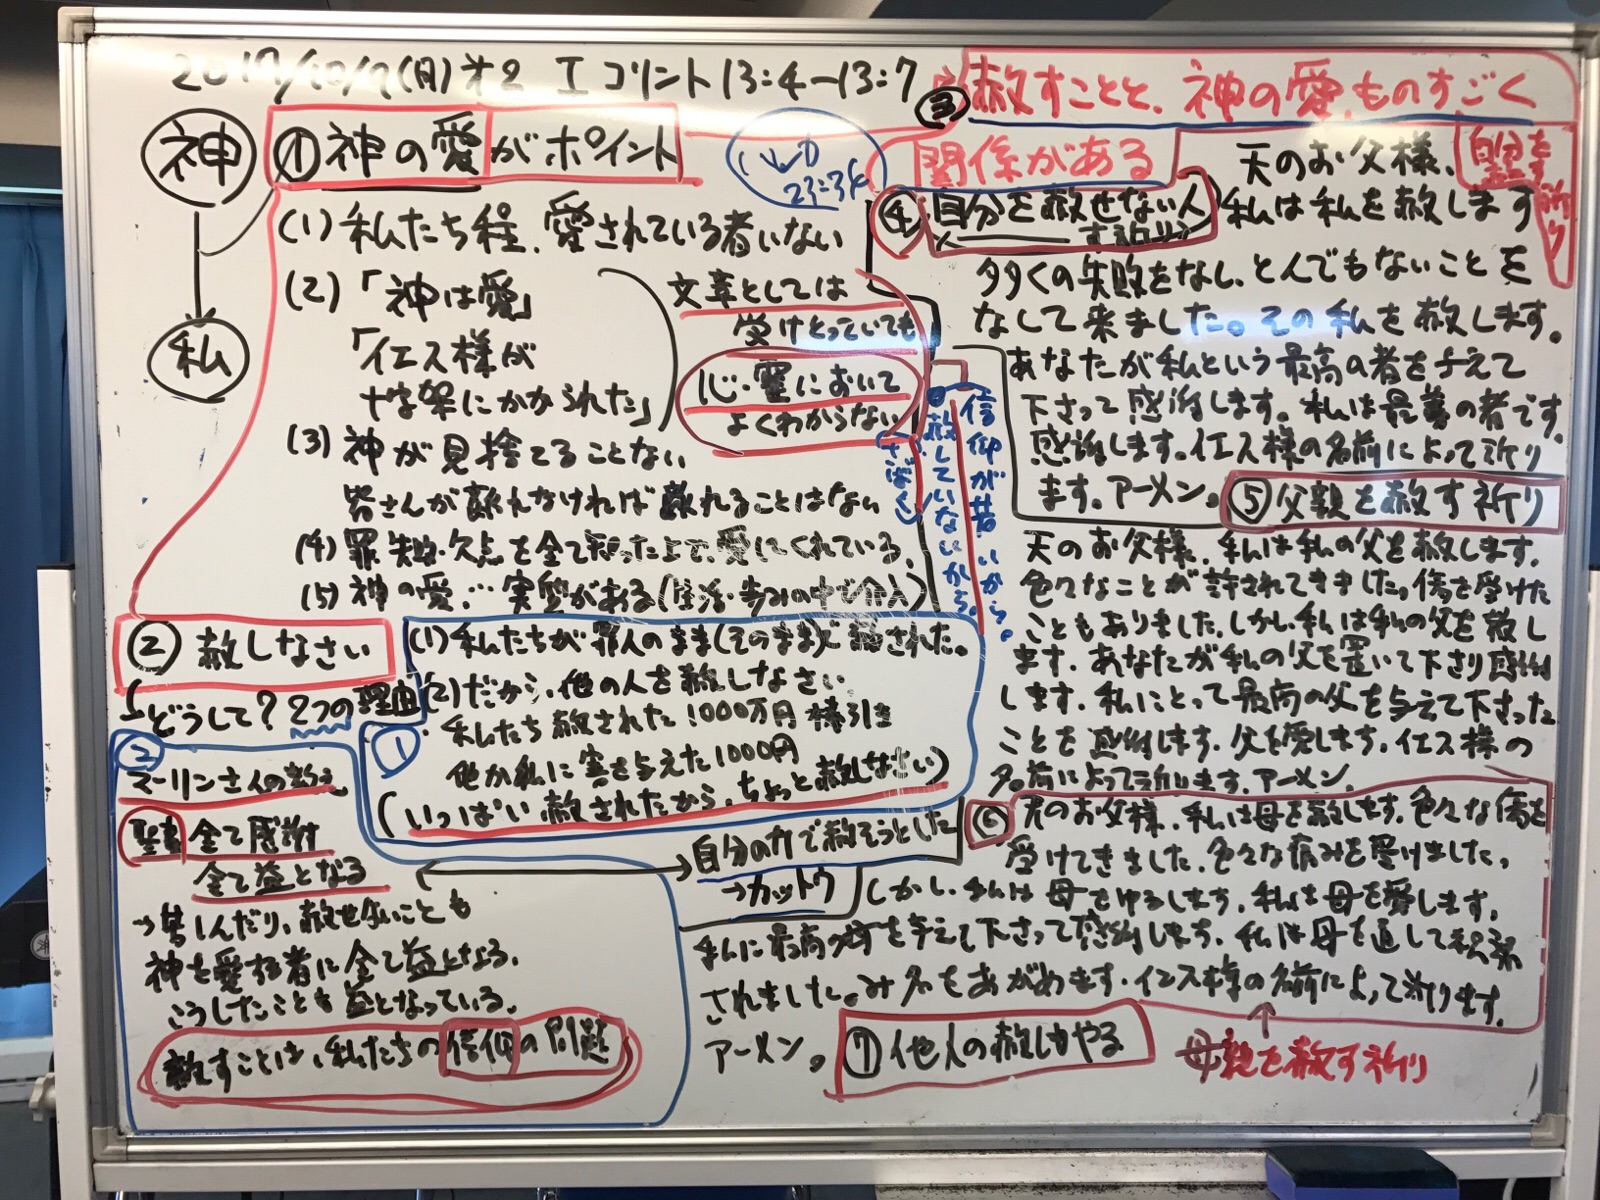 2017/10/9(月) オ2 I コリント13:4−13:7
神
私
① 神の愛がポイント
ルカ
23:34
(1) 私たち程、愛されている者いない
(2)「神は愛」
「イエス様が
十字架にかかられた」
文章としては
受けとっていても
心・霊において
よくわからない
(3) 神が見捨てることない
皆さんが離れなければ離れることはない
(4) 罪・失敗・欠点を全て知った上で、愛してくれている。
(5) 神の愛… 実質がある(生活・歩みの中で介入)
信仰が昔いから。
赦していないから。
(さばく)
② 赦しなさい
どうして? 2つの理由
①
(1) 私たちが罪人のまま(そのまま)で赦された。
(2) だから、他の人を赦しなさい
私たち赦された1000万円棒引き
他が私に害を与えた1000円
(いっぱい赦されたから、ちょっと赦しなさい)
②
マーリンさんの教え
聖書 全て感謝
全て益となる
→苦しんだり、赦せないことも
神を愛する者に全て益となる。
こうしたことも益となっている。
赦すことは、私たちの信仰の問題
自分の力で赦そうとした
→カットウ
③ 赦すことと、神の愛、ものすごく
関係がある
④ 自分を赦せない人
自分を
聖す
祈り
天のお父様、
私は私を赦します
多くの失敗をなし、とんでもないことを
なして来ました。その私を赦します。
あなたが私という最高の者を与えて
下さって感謝します。私は最善の者です。
感謝します。イエス様の名前によって祈り
ます。アーメン。
⑤ 父親を赦す祈り
天のお父様、私は私の父を赦します。
色々なことが許されてきました。傷を受けた
こともありました。しかし、私は私の父を赦し
ます。あなたが私の父を置いて下さり感謝
します。私にとって最高の父を与えて下さった
ことを感謝します。父を愛します。イエス様の
名前によって祈ります。アーメン。
⑥ 天のお父様、私は母を赦します。色々な傷を
受けてきました。色々な痛みを受けました。
しかし、私は母をゆるします。私は母を愛します。
私に最高の母を与えて下さって感謝します。私は母を通して
されました。み名をあがめます。イエス様の名前によって祈ります。
アーメン。
母親を赦す祈り
⑦ 他人の赦しもやる